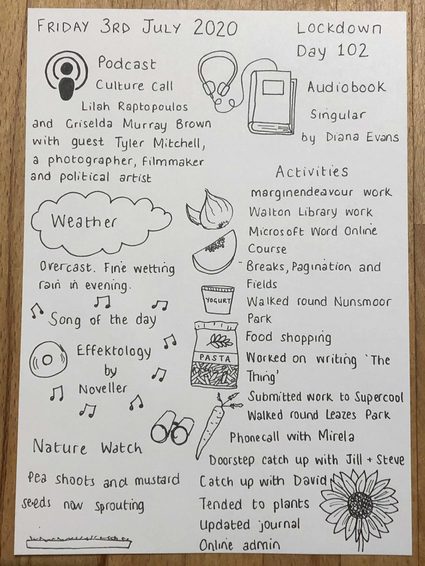 FRIDAY 3RD JULY 2020
Lockdown
Day 102
Podcast
Culture Call
Lilah Raptopoulos
and Griselda Murray Brown
with guest Tyler Mitchell,
a photographer, filmmaker
and political artist
Audiobook
Singular
by Diana Evans
Weather
Overcast. Fine wetting
rain in evening.
Song of the day
Effektology
by
Noveller
Nature Watch
Pea shoots and mustard
seeds now sprouting
Activities
marginendeavour work
Walton Library work
Microsoft Word Online
Course
- Breaks, Pagination and
Fields
Walked round Nunsmoor
Park
Food shopping
Worked on writing 'The
Thing'
Submitted work to Supercool
Walked round Leazes Park
Phonecall with Mirela
Doorstep catch up with Jill + Steve
Catch up with David
Tended to plants
Updated journal
Online admin
YOGURT
PASTA